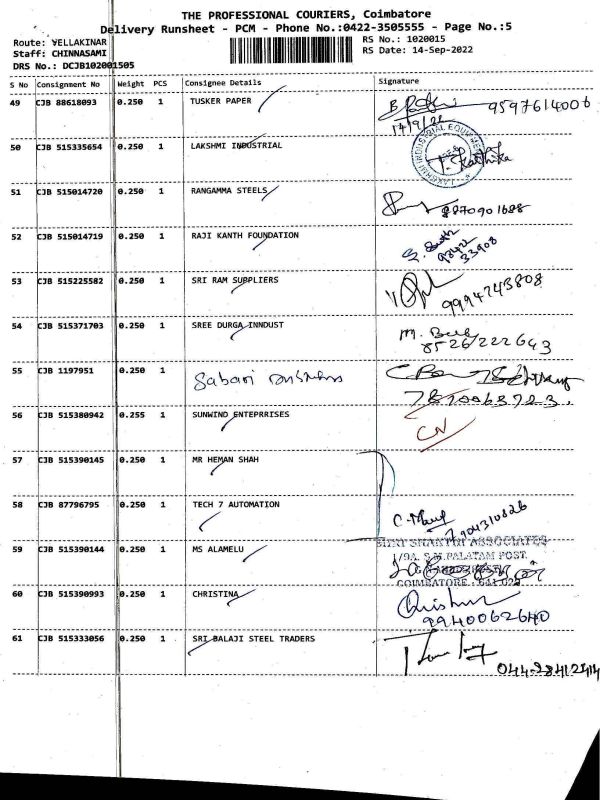 THE PROFESSIONAL COURIERS, Coimbatore
Delivery Runsheet - PCM - Phone No.:0422-3505555 - Page No.:5
Route: VELLAKINAR
RS No.: 1020015
Staff: CHINNASAMI
RS Date: 14-Sep-2022
DRS No.: DCJB102001505
S No Consignment No Weight PCS Consignee Details Signature
49 CJB 88618093 0.250 1 TUSKER PAPER 9597614006
14/9/22
50 CJB 515335654 0.250 1 LAKSHMI INDUSTRIAL
51 CJB 515014720 0.250 1 RANGAMMA STEELS 8870901688
52 CJB 515014719 0.250 1 RAJI KANTH FOUNDATION
98422
33908
53 CJB 515225582 0.250 1 SRI RAM SUPPLIERS 9994743808
54 CJB 515371703 0.250 1 SREE DURGA INNDUST
8526222643
55 CJB 1197951 0.250 1 Sabari
56 CJB 515380942 0.255 1 SUNWIND ENTEPRRISES CN
57 CJB 515390145 0.250 1 MR HEMAN SHAH
58 CJB 87796795 0.250 1 TECH 7 AUTOMATION
7904310826
59 CJB 515390144 0.250 1 MS ALAMELU
SHAKTHI ASSOCIATES
1/9A, S.M.PALAYAM POST,
COIMBATORE
60 CJB 515390993 0.250 1 CHRISTINA
9940062640
61 CJB 515333056 0.250 1 SRI BALAJI STEEL TRADERS
044-28412414